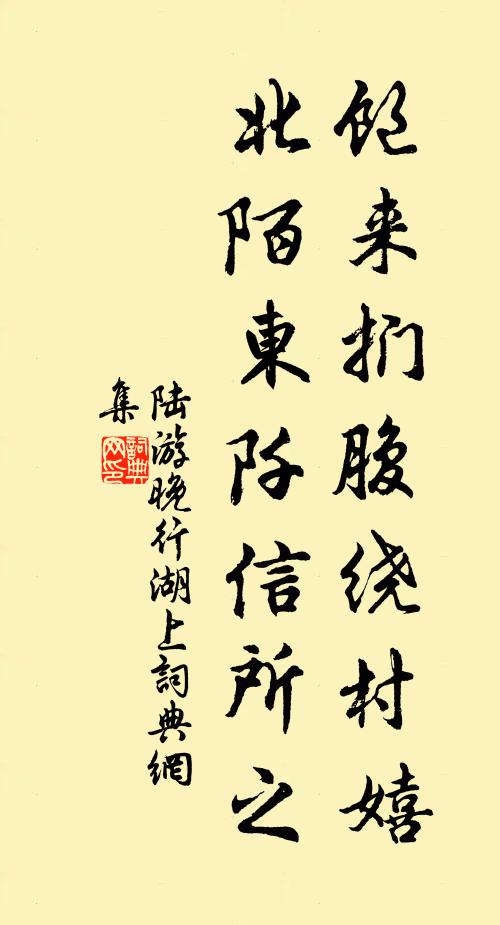 饱来扪腹绕村嬉
北陌東阡信所之
陆游晚行湖上詞典網
集
詞典
网印